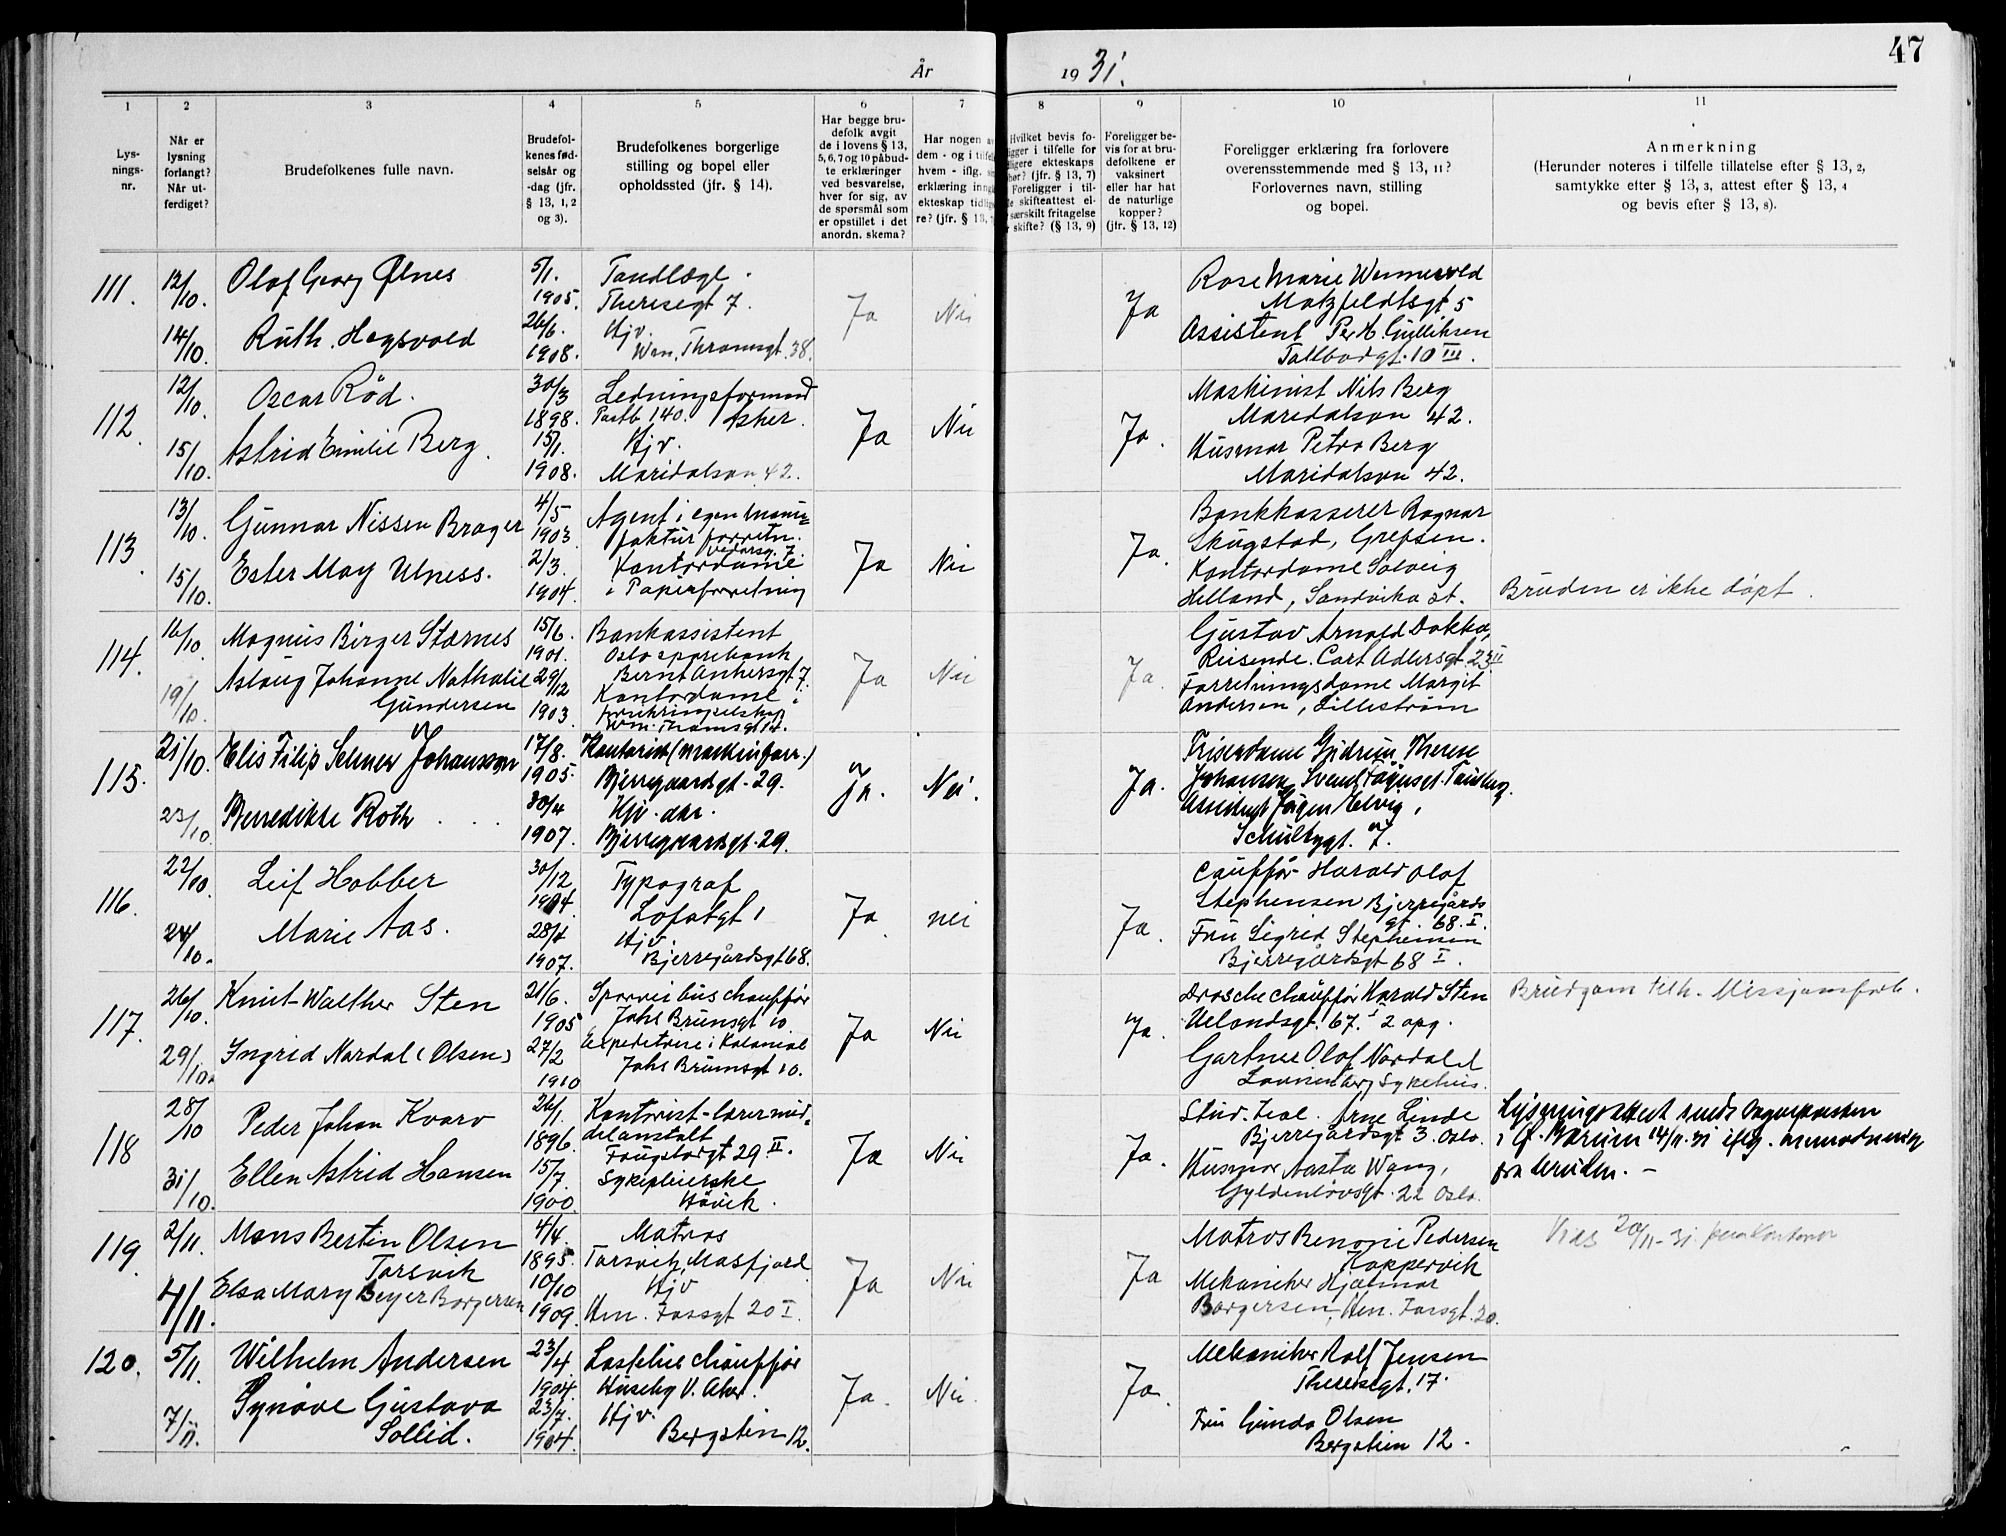 47
År
19 31.
1
2
3
4
5
6
7
8
9
10
11
Lys-
nings-
nr.
Når er
lysning
forlangt?
Når ut-
ferdiget?
Brudefolkenes fulle navn.
Brudefol-
kenes fød-
selsår og
-dag (jfr.
§ 13, 1, 2
og 3).
Brudefolkenes borgerlige
stilling og bopel eller
opholdssted (jfr. § 14).
Har begge bru-
defolk avgit
de i lovens § 13,
5, 6, 7 og 10 påbud-
te erklæringer
ved besvarelse,
hver for sig, av
de spørsmål som
er opstillet i det
anordn. skema?
Har nogen av
dem - og i tilfelle
hvem - iflg.
erklæring inng
ekteskap tidlig
re? (jfr. § 13,
Hvilket bevis fo-
ligger i tilfelle for
ligere ekteskaps
hør? (jfr. § 13, 7)
Foreligger i til-
le skifteattest el-
særskilt fritagelse
skifte? (§ 13, 9)
Foreligger be-
vis for at bru-
defolkene er
vaksinert
eller har hat
de naturlige
kopper?
(jfr. § 13, 12)
Foreligger erklæring fra forlovere
overensstemmende med § 13, 11?
Forlovernes navn, stilling
og bopel.
Anmerkning
(Herunder noteres i tilfelle tillatelse efter § 13, 2,
samtykke efter § 13, 3, attest efter § 13, 4
og bevis efter § 13, 8).
111.
12/10.
14/10.
Olaf Georg Ølnes
Ruth Hogsvold
5/1.
1905.
26/6.
1908.
Tandlæge.
Theresegt 7.
Hjv.
Wm. Thranesgt. 38.
Ja
Nei
Ja
Rose Marie
5
Assistent Per H. Gulliksen
10 III.
112.
12/10.
15/10.
Oscar Rød.
Astrid Emilie Berg.
30/3
1898.
15/1.
1908.
Ledningsformand
Postb 140. Asker.
Hjv.
Maridalsvn. 42.
Ja
Nei
Ja.
Maskinist Nils Berg
Maridalsvn 42.
Husmor Petra Berg
Maridalsvn 42.
113.
13/10.
15/10.
Gunnar Nissen Brager
Ester May Ulness.
4/5
1903
2/3.
1904.
Agent i egen manu-
faktur forretn.
7.
Kontordame
i Papirforretning
Ja
Nei
Ja.
Bankkasserer Ragnar
Skugstad, Grefsen.
Kontordame Solveig
Helland, Sandvika st.
Bruden er ikke døpt.
114.
16/10.
19/10.
Magnus Birger Stærnes
Aslaug Johanne Nathalie
Gundersen
15/6.
1901.
29/12
1903.
Bankassistent
Oslo sparebank
Bernt Ankersgt 7.
Kontordame i
forsikringselskap
Wm. Thranesgt 14.
Ja
Nei
Ja.
Gustav Arnold Dokka,
Reisende. Carl Adlersgt. 23 II
Forretningsdame Margit
Andersen, Lillestrøm
115.
21/10.
23/10.
Elis Filip Johansson
Benedikte Roth
17/8.
1905.
30/4
1907.
Kontorist (maskinforr.)
Bjerregaardsgt. 29.
Hjv.
Bjerregaardsgt. 29.
Ja.
Nei.
Ja.
Frisørdame Gudrun Therese
Johansen,
Assistent Jørgen
Schultzgt. 7.
116.
22/10.
24/10.
Leif Hobber
Marie Aas.
30/12
1904.
28/4
1907.
Typograf
Lofotgt 1
Hjv.
Bjerregårdsgt 68.
Ja.
nei
Ja.
Cauffør Harald Olof
Stephensen Bjerregårds
gt. 68. I.
Fru Sigrid Stephensen
Bjerregårdsgt 68 I.
117.
26/10.
29/10.
Knut Walther Sten
Ingrid Nordal (Olsen)
21/6.
1905
27/2
1910
Sporveibuschauffør
Johs Brunsgt 10.
Expeditrise i Kolonial
Johs Brunsgt 10.
Ja
Nei
Ja.
Droschechauffør Harald Sten
Uelandsgt. 67. I 2 opg.
Gartner Olof Nordal
Lovisenberg Sykehus.
Brudgom tilh. Missjonsforb.
118
28/10
31/10.
Peder Johan Kvarv
Ellen Astrid Hansen
26/1.
1896.
15/7.
1900.
Kontorist - læremid-
delanstalt
29. II.
Sykepleierske
Høvik.
Ja
Nei
Ja.
Stud. real. Arne Linde
Bjerregårdsgt 3. Oslo.
Husmor Aasta Wang,
Gyldenløvsgt. 22 Oslo.
Lysningsattest sendt Sognepresten
i Ø. Bærum 14/11. 31 iflg. anmodning
fra bruden. -
119
2/11.
4/11.
Mons Bertin Olsen
Torsvik
Elsa Mary Beyer Borgersen
4/4.
1895.
10/10
1909.
Matros
Torsvik, Masfjord
Hjv
Hm. 20 I.
Ja
Nei
Ja
Matros Benoni Pedersen
Koppervik
Mekaniker Hjalmar
Borgersen, Hm. 20.
Vies 20/11-31
120.
5/11.
7/11.
Wilhelm Andersen
Synøve Gustava
Sollid.
23/4
1904.
23/7.
1904.
Lastebilchauffør
Huseby V. Aker.
Hjv.
Bergstien 12.
Ja.
Nei.
Ja.
Mekaniker Rolf Jensen
Theresegt. 17.
Fru Gunda Olsen
Bergstien 12.